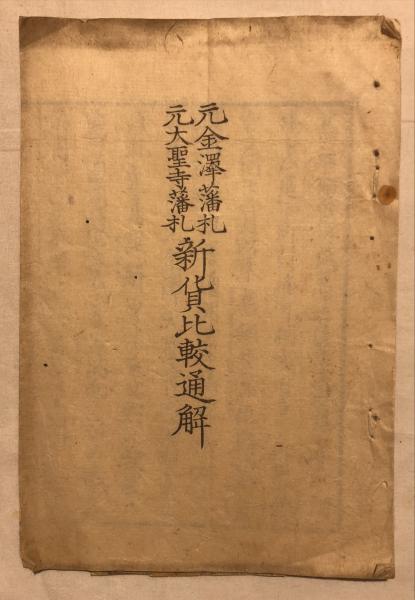 元金澤藩札
元大聖寺藩札
新貨比較通解